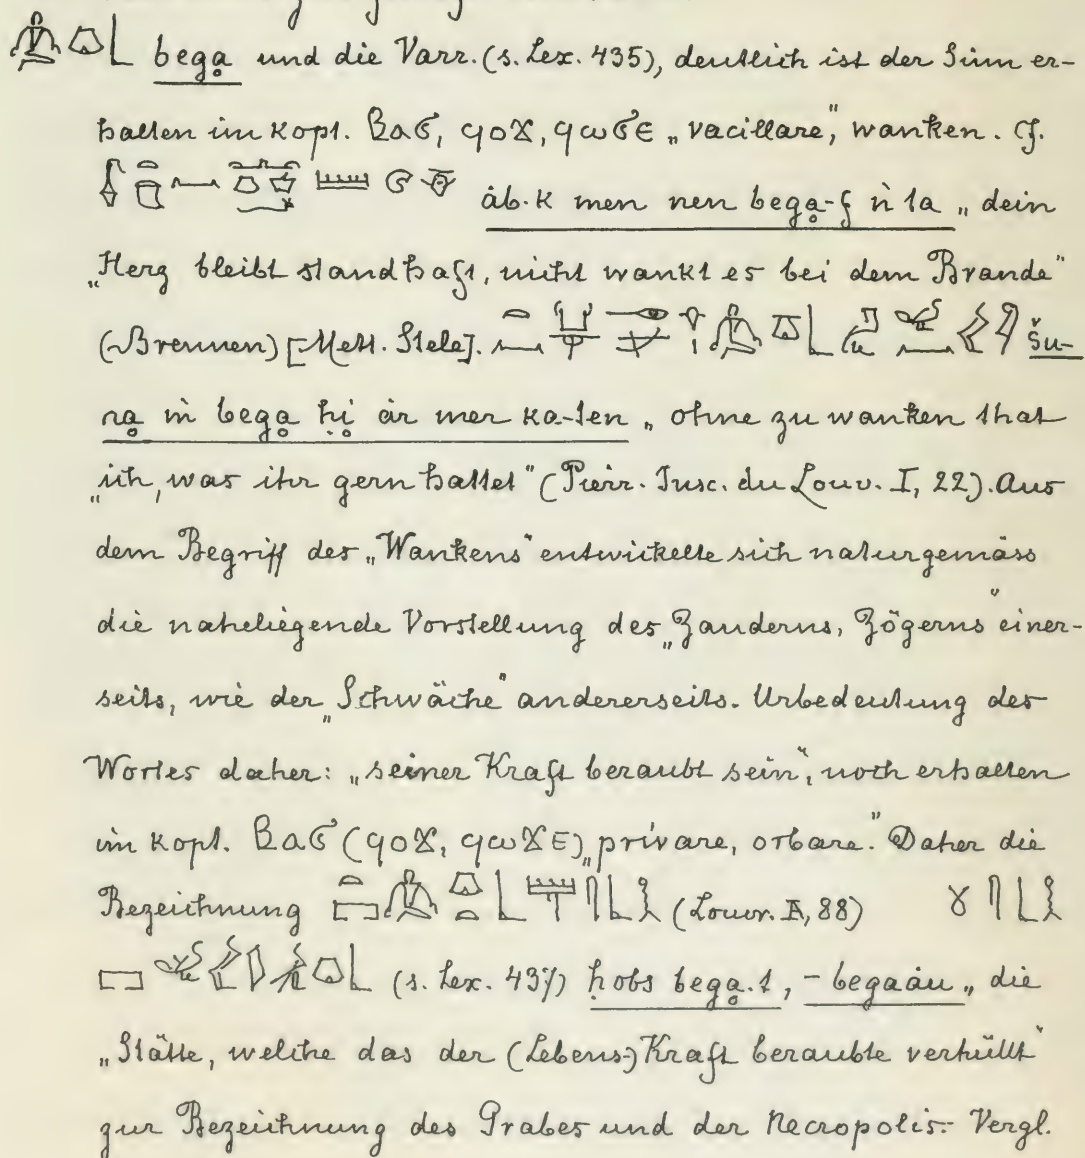 bega̤ und die Varr. (s. Lex. 435), deutlich ist der Sinn er-
halten im Kopt. ⲃⲁϭ, ϥⲟϫ, ϥⲱϭⲉ „vacillare," wanken. Cf.
áb.k men nen bega̤-f ṅ ta „dein
„Herz bleibt standhaft, nicht wankt es bei dem Brande"
(Brennen) [Mett. Stele]. šu-
na̤ m bega̤ ḥi ár mer ka-ten „ohne zu wanken that
„ich, was ihr gern hattet" (Pierr. Insc. du Louv. I, 22). Aus
dem Begriff des „Wankens" entwickelte sich naturgemäss
die naheliegende Vorstellung des „Zauderns, Zögerns" einer-
seits, wie der „Schwäche" andererseits. Urbedeutung des
Wortes daher: „seiner Kraft beraubt sein", noch erhalten
im Kopt. ⲃⲁϭ (ϥⲟϫ, ϥⲱϫⲉ) „privare, orbare." Daher die
Bezeichnung (Louvr. A, 88)
(s. Lex. 437) ḥobs bega̤.t, - begaáu „die
„Stätte, welche das der (Lebens-)Kraft beraubte verhüllt"
zur Bezeichnung des Grabes und der Necropolis.- Vergl.